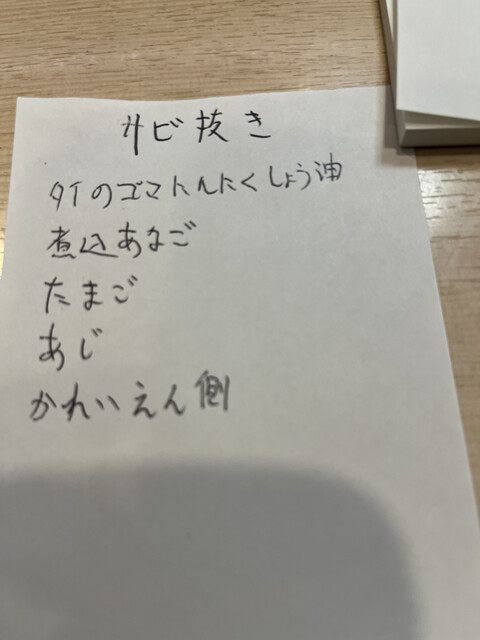 サビ抜き
タイのゴマにんにくしょう油
煮込あなご
たまご
あじ
かれいえん側